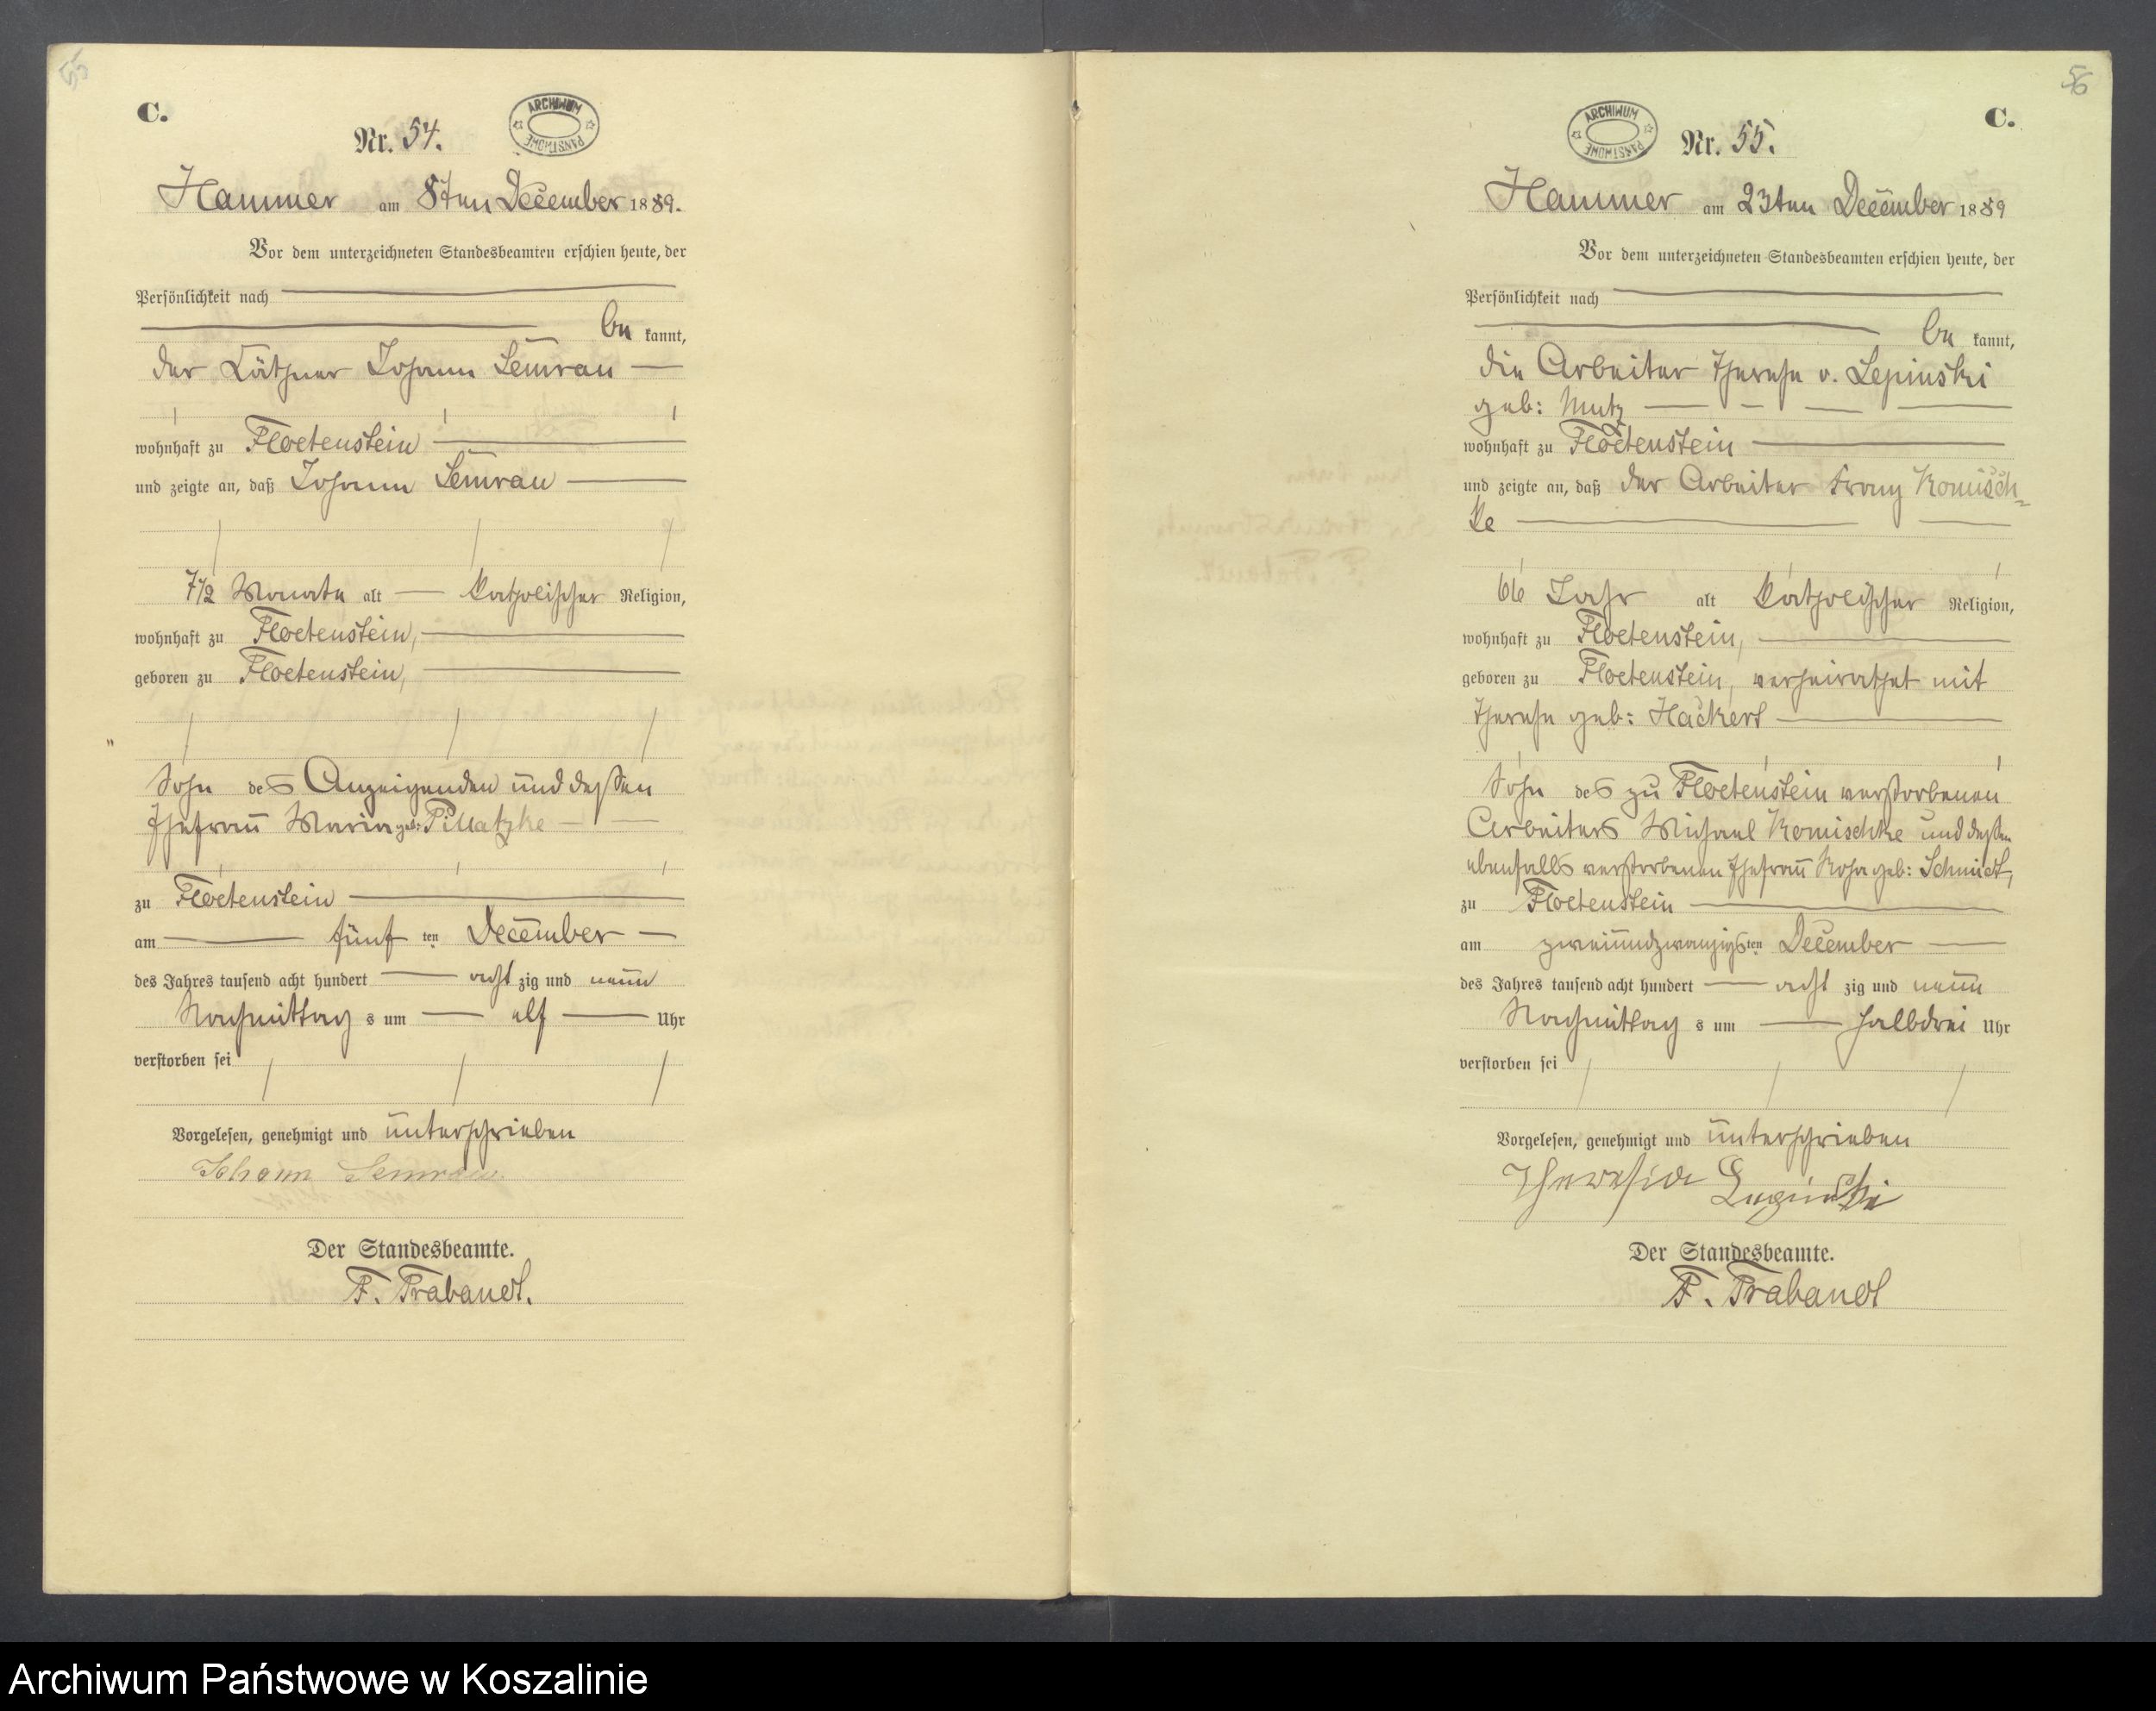 55
C.
ARCHIWUM PAŃSTWOWE
Nr. 54.
Hammer am 8ten December 1889.
Vor dem unterzeichneten Standesbeamten erschien heute, der
Persönlichkeit nach
be kannt,
der Käthner Johann Semrau
wohnhaft zu Floetenstein
und zeigte an, daß Johann Semrau
7 1/2 Monate alt katholischer Religion,
wohnhaft zu Floetenstein,
geboren zu Floetenstein,
Sohn des Anzeigenden und dessen
Ehefrau Maria geb: Pillatzke
zu Floetenstein
am fünf ten December
des Jahres tausend acht hundert acht zig und neun
Nachmittag s um elf Uhr
verstorben sei
Vorgelesen, genehmigt und unterschrieben
Johann Semrau
Der Standesbeamte.
F. Trabandt.
56
C.
ARCHIWUM PAŃSTWOWE
Nr. 55.
Hammer am 23ten December 1889
Vor dem unterzeichneten Standesbeamten erschien heute, der
Persönlichkeit nach
be kannt,
die Arbeiter Therese v. Lepinski
geb: Mutz
wohnhaft zu Floetenstein
und zeigte an, daß der Arbeiter Franz Komisch-
ke
66 Jahr alt katholischer Religion,
wohnhaft zu Floetenstein,
geboren zu Floetenstein, verheirathet mit
Therese geb: Hackert
Sohn des zu Floetenstein verstorbenen
Arbeiters Michael Komischke und dessen
ebenfalls verstorbenen Ehefrau Rosa geb: Schmidt,
zu Floetenstein
am zweiundzwanzigsten December
des Jahres tausend acht hundert acht zig und neun
Nachmittag s um halbdrei Uhr
verstorben sei
Vorgelesen, genehmigt und unterschrieben
Theresia Lepinski
Der Standesbeamte.
F. Trabandt
Archiwum Państwowe w Koszalinie